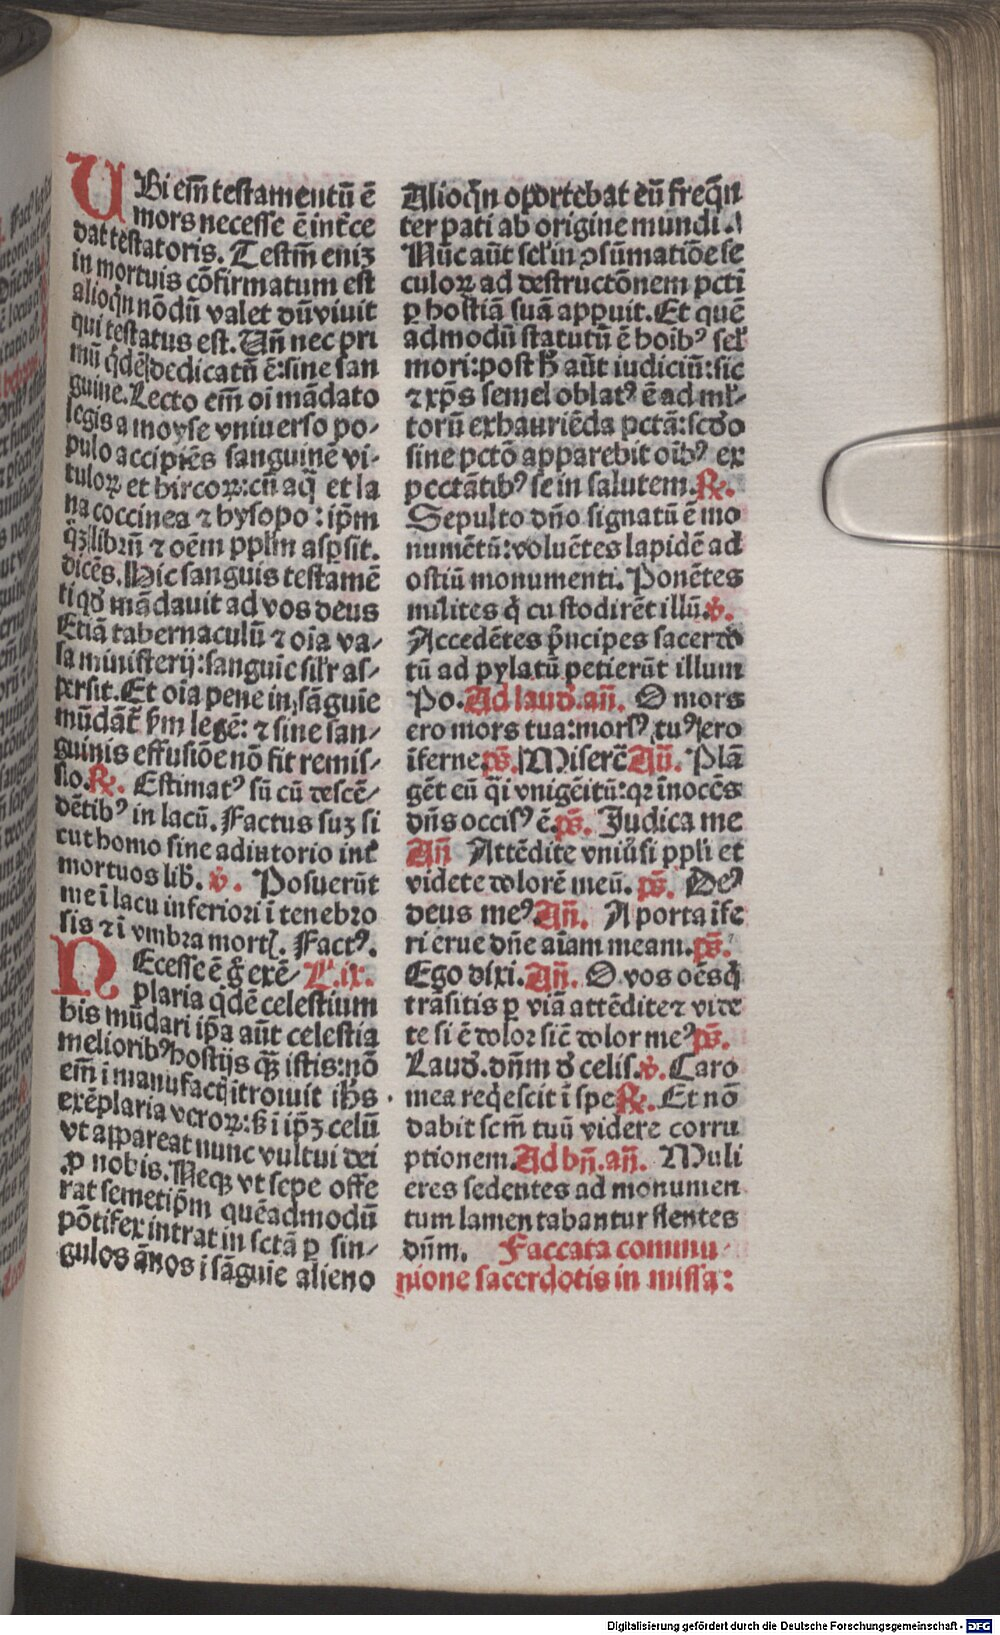 UBi em̄ testamentū ē
mors necesse ē int̄ce
dat testatoris. Testm̄ eniꝫ
in mortuis cōfirmatum est
alioqn̄ nōdū valet dū viuit
qui testatus est. Un̄ nec pri
mū q̇dē dedicatū ē: sine san
guine. Lecto em̄ oī mādato
legis a moyse vniuerso po⸗
pulo accipiēs sanguinē vi⸗
tuloꝝ et hircoꝝ: cū aq̄ et la
na coccinea ⁊ hysopo: ip̄m
q̇ꝫ librū ⁊ oēm pplm̄ asp̄sit.
dicēs. Hic sanguis testamē
ti qd̕ mādauit ad vos deus
Etiā tabernaculū ⁊ oīa va⸗
sa ministerij: sanguīe silr̄ as⸗
persit. Et oīa pene in sāguīe
mūdāt̄ ẜm legē: ⁊ sine san⸗
guinis effusiōe nō fit remis⸗
sio. ℟. Estimatꝰ sū cū descē⸗
dētibꝰ in lacū. Factus suꝫ si
cut homo sine adiutorio int̄
mortuos lib̄. ℣. Posuerūt
me ī lacu inferiori ī tenebro
sis ⁊ ī vmbra mortꝭ. Factꝰ.
NEcesse ē g̊ exē⸗ L.ix.
plaria q̇dē celestium
his mūdari ip̄a aūt celestia
melioribꝰ hostijs qꝫ̄ istis: nō
em̄ ī manufacta itroiuit ih̄s
exēplaria veroꝝ: ẜ ī ip̄ꝫ celū
vt appareat nunc vultui dei
ꝓ nobis. Neqꝫ vt sepe offe
rat semetip̄m quēadmodū
pōtifex intrat in sctā ꝑ sin⸗
gulos ānos ī sāguīe alieno
Alioqn̄ oportebat eū freqn̄
ter pati ab origine mundi.
Nūc aūt sel̕ in ꝯsūmatiōe se
culoꝝ ad destructōnem pcti
ꝑ hostiā suā appuit. Et quē
admodū statutū ē hoībꝰ sel̕
mori: post h̄ aūt iudiciū: sic
⁊ xp̄s semel oblatꝰ ē ad ml̕⸗
torū exhauriēda pctā: scd̕o
sine pctō apparebit oībꝰ ex
pectātibꝰ se in salutem. ℟.
Sepulto dn̄o signatū ē mo
numētū: voluētes lapidē ad
ostiū monumenti. Ponētes
milites q̇ custodirēt illū. ℣.
Accedētes pn̄cipes sacerdo
tū ad pylatū petierūt illum
Po. Ad laud̕. an̄. O mors
ero mors tua: morsꝰ tuꝰ ero
īferne ps̄. Miserē Añ. Plā
gēt eū q̄i vnigēitū: qꝛ īnocēs
dn̄s occisꝰ ē. ps̄. Iudica me
Añ Attēdite vniūsi ppl̕i et
videte dolorē meū. ps̄. Deꝰ
deus meꝰ. Añ. A porta īfe
ri erue dn̄e aīam meam. ps̄.
Ego dixi. Añ. O vos oēs q̇
trāsitis ꝑ viā attēdite ⁊ vide
te si ē dolor sic̄ dolor meꝰ ps̄.
Laud̕. dn̄m d̕ celis. ℣. Caro
mea reqescit ī spe ℟. Et nō
dabit scm̄ tuū videre corru
ptionem. Ad bn̄. añ. Muli
eres sedentes ad monumen
tum lamentabantur flentes
dn̄m. Faccata commu⸗
nione sacerdotis in missa:
Digitalisierung gefördert durch die Deutsche Forschungsgemeinschaft - DFG